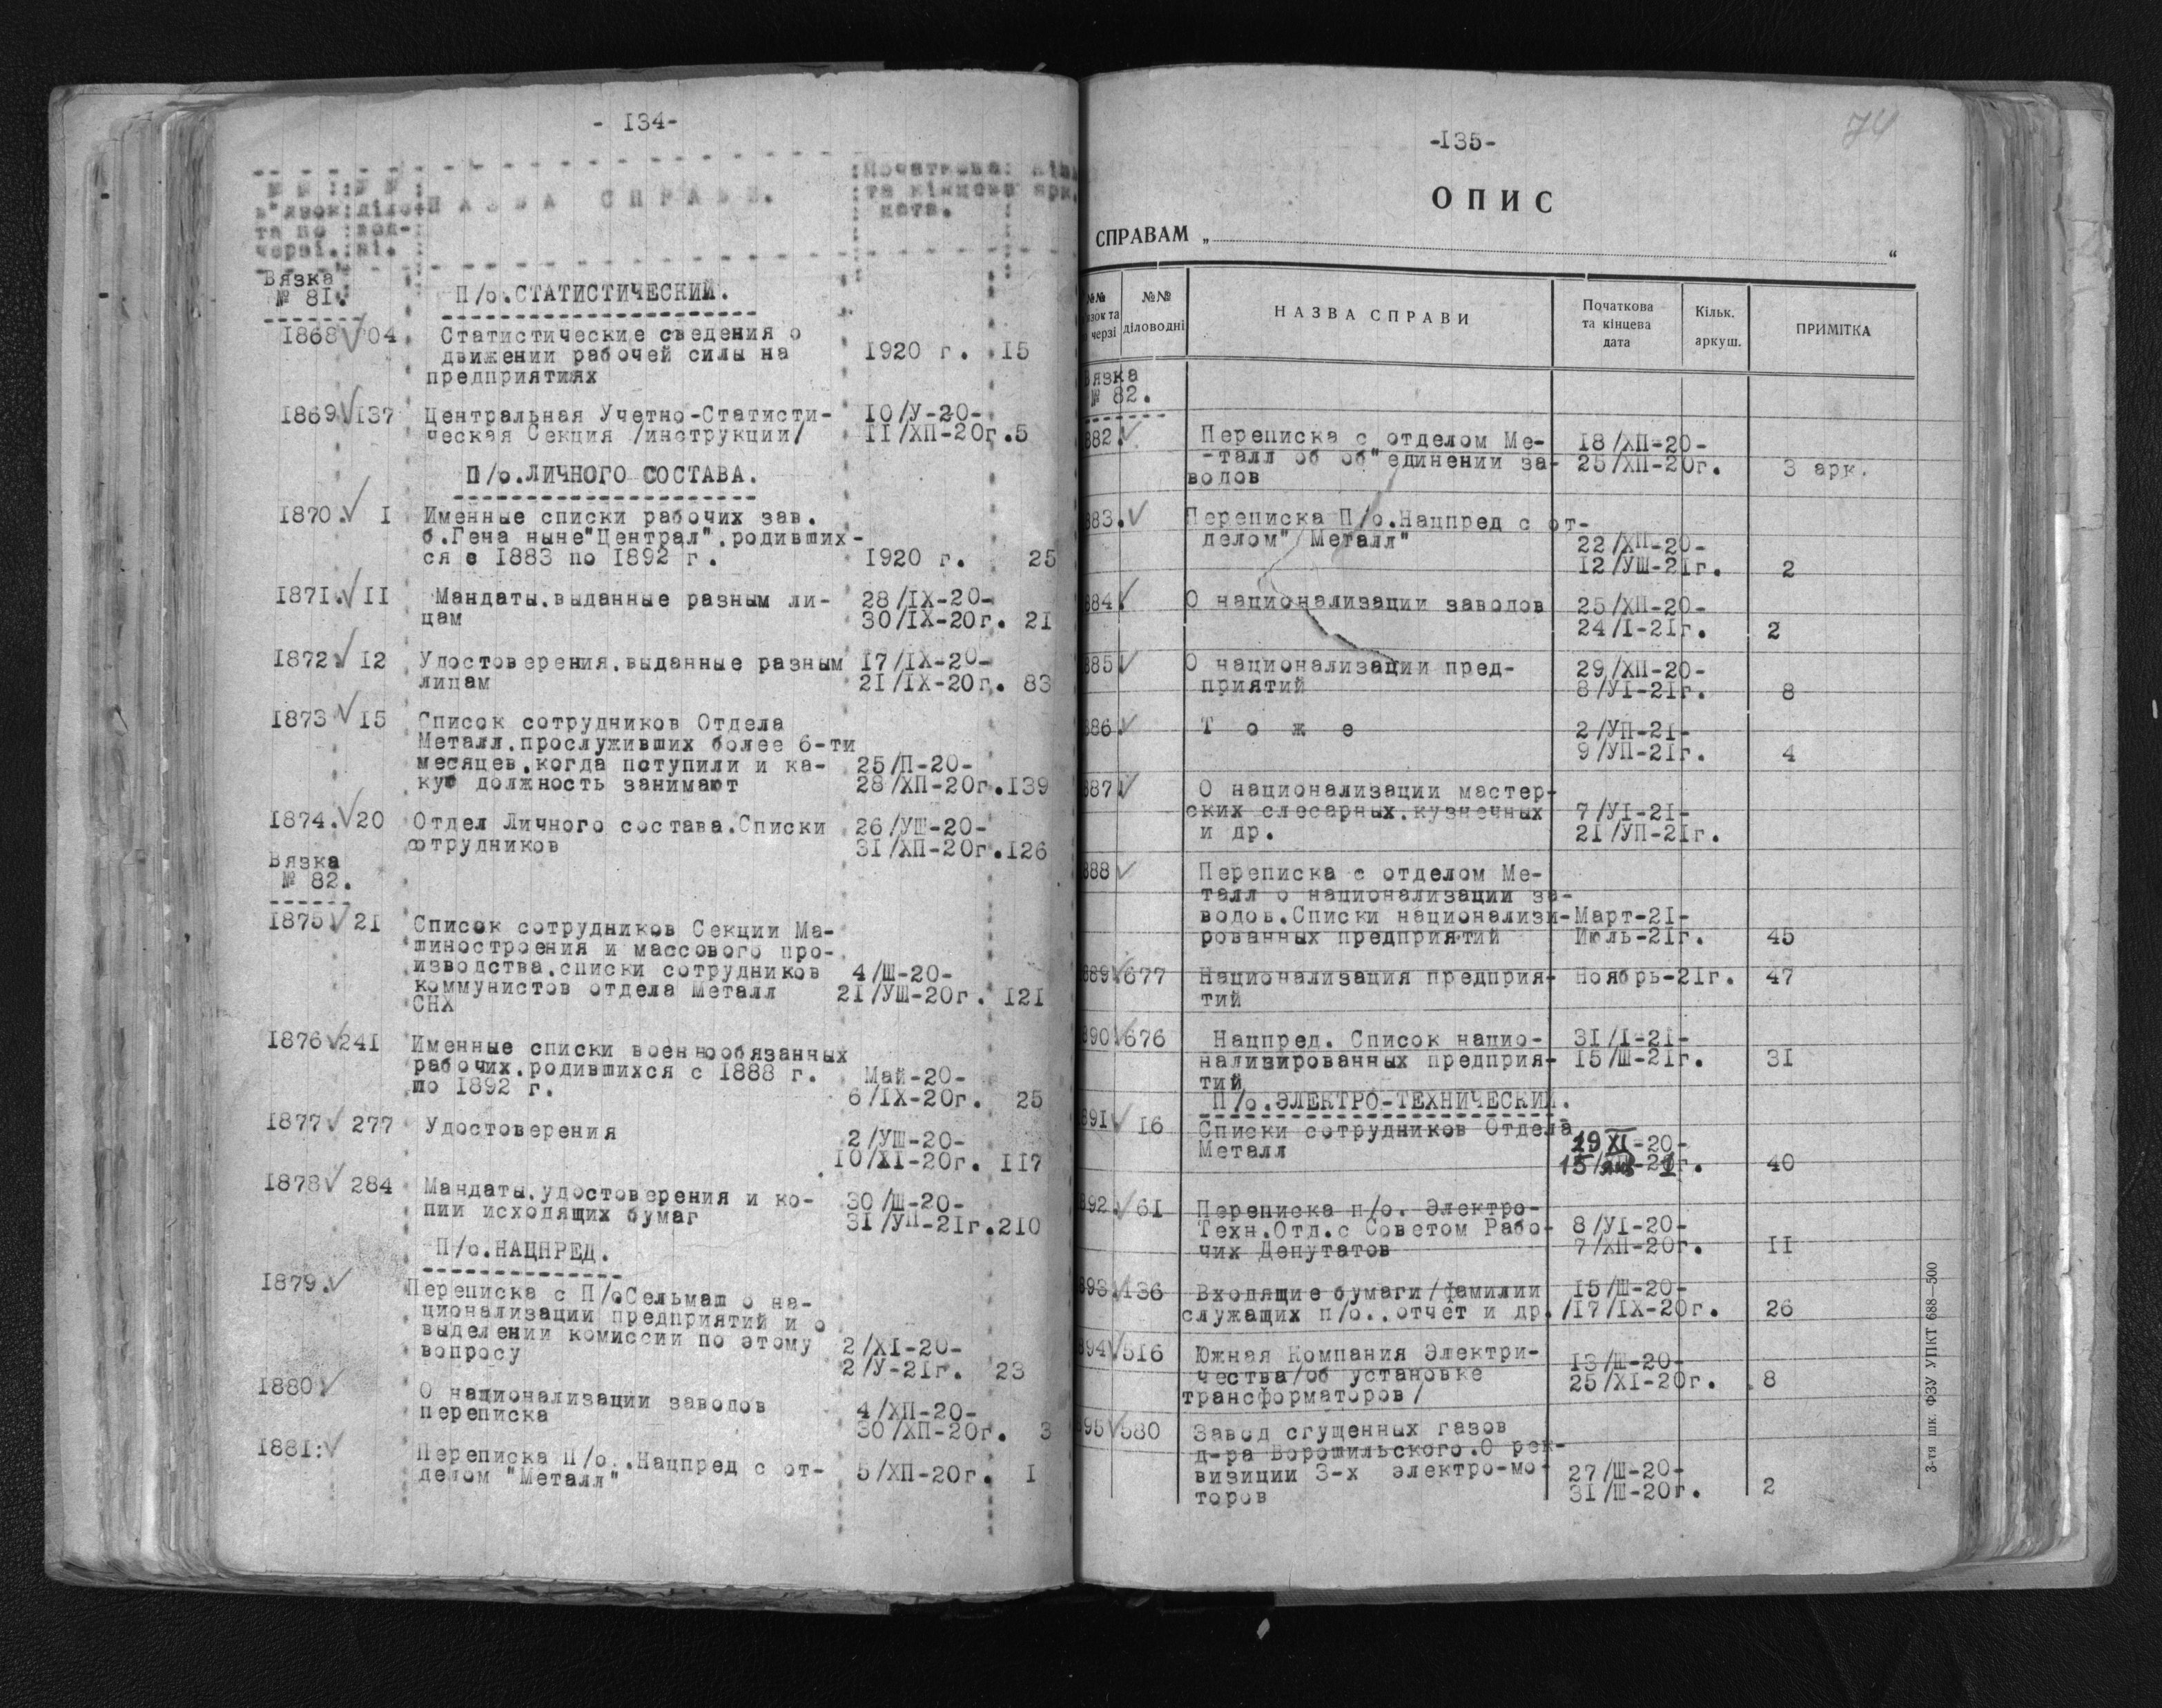 - 134-
№ № : № № :
в"язок: діло-
та по : вод-
черзі.: ні.
НАЗВА СПРАВИ.
Початкова:
та кінцева
дата.
Вязка
№ 81.
П/о.СТАТИСТИЧЕСКИЙ.
1868 04 Статистические сведения о
движении рабочей силы на 1920 г. 15
предприятиях
1869 137 Центральная Учетно-Статисти- 10/У-20-
ческая Секция /инструкции/ 11/ХП-20г.5
П/о.ЛИЧНОГО СОСТАВА.
1870. 1 Именные списки рабочих зав.
б.Гена ныне"Централ".родивших-
ся с 1883 по 1892 г. 1920 г. 25
1871. 11 Мандаты.выданные разным ли- 28/IX-20-
цам 30/IX-20г. 21
1872. 12 Удостоверения.выданные разным 17/IX-20-
лицам 21/IX-20г. 83
1873 15 Список сотрудников Отдела
Металл.прослуживших более 6-ти
месяцев.когда поступили и ка- 25/П-20-
кую должность занимают 28/ХП-20г.139
1874. 20 Отдел Личного состава.Списки 26/УШ-20-
сотрудников 31/ХП-20г.126
Вязка
№ 82.
1875 21 Список сотрудников Секции Ма-
шиностроения и массового про-
изводства.списки сотрудников 4/Ш-20-
коммунистов отдела Металл 21/УШ-20г. 121
СНХ
1876 241 Именные списки военнообязанных
рабочих.родившихся с 1888 г. Май-20-
по 1892 г. 6/IX-20г. 25
1877 277 Удостоверения 2/УШ-20-
10/XI-20г. 117
1878 284 Мандаты.удостоверения и ко- 30/Ш-20-
пии исходящих бумаг 31/УП-21г.210
П/о.НАЦПРЕД.
1879. Переписка с П/оСельмаш о на-
ционализации предприятий и о
выделении комиссии по этому 2/XI-20-
вопросу 2/У-21г. 23
1880 О национализации заводов 4/ХП-20-
переписка 30/ХП-20г. 3
1881: Переписка П/о..Нацпред с от- 5/ХП-20г. 1
делом "Металл"
74
-135-
ОПИС
СПРАВАМ „ “
№№
язок та
черзі
№№
діловодні
НАЗВА СПРАВИ
Початкова
та кінцева
дата
Кільк.
аркуш.
ПРИМІТКА
Вязка
№ 82.
882. Переписка с отделом Ме- 18/ХП-20-
-талл об об"единении за- 25/ХП-20г. 3 арк.
водов
883. Переписка П/о.Нацпред с от-
делом" Металл" 22/ХП-20-
12/УШ-21г. 2
884. О национализации заводов 25/ХП-20-
24/I-21г. 2
885 О национализации пред- 29/ХП-20-
приятий 8/УI-21г. 8
886. Т о ж е 2/УП-21-
9/УП-21г. 4
887 О национализации мастер-
ских слесарных.кузнечных 7/УI-21-
и др. 21/УП-21г.
888 Переписка с отделом Ме-
талл о национализации за-
водов.Списки национализи- Март-21-
рованных предприятий Июль-21г. 45
889 677 Национализация предприя- Ноябрь-21г. 47
тий
890 676 Нацпред. Список нацио- 31/I-21-
нализированных предприя- 15/Ш-21г. 31
тий
П/о.ЭЛЕКТРО-ТЕХНИЧЕСКИЙ.
891 16 Списки сотрудников Отдела
Металл 19 XI-20-
15/ -21г. 40
892. 61 Переписка п/о. Электро-
Техн.Отд.с Советом Рабо- 8/УI-20-
чих Депутатов 7/ХП-20г. 11
893. 136 Входящие бумаги/фамилии 15/Ш-20-
служащих п/о..отчет и др./17/IX-20г. 26
894 516 Южная Компания Электри- 13/Ш-20-
чества/об установке 25/XI-20г. 8
трансформаторов/
895 580 Завод сгущенных газов
д-ра Ворошильского.О рек-
визиции 3-х электро-мо- 27/Ш-20-
торов 31/Ш-20г. 2
3-тя шк. ФЗУ УПКТ 688—500